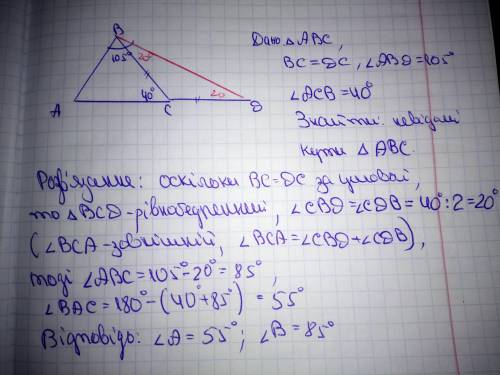 B
105° 20°
A 40° C 20 D
Дано: △ ABC,
BC=DC, ∠ABD=105°
∠ACB=40°
Знайти: невідомі
кути △ ABC.
Розв'язання: оскільки BC=DC за умовою,
то △BCD-рівнобедрений, ∠CBD=∠CDB=40°:2=20°
(∠BCA-зовнішній, ∠BCA=∠CBD+∠CDB),
тоді ∠ABC=105°-20°=85°,
∠BAC=180°-(40°+85°)=55°
Відповідь: ∠A=55°; ∠B=85°